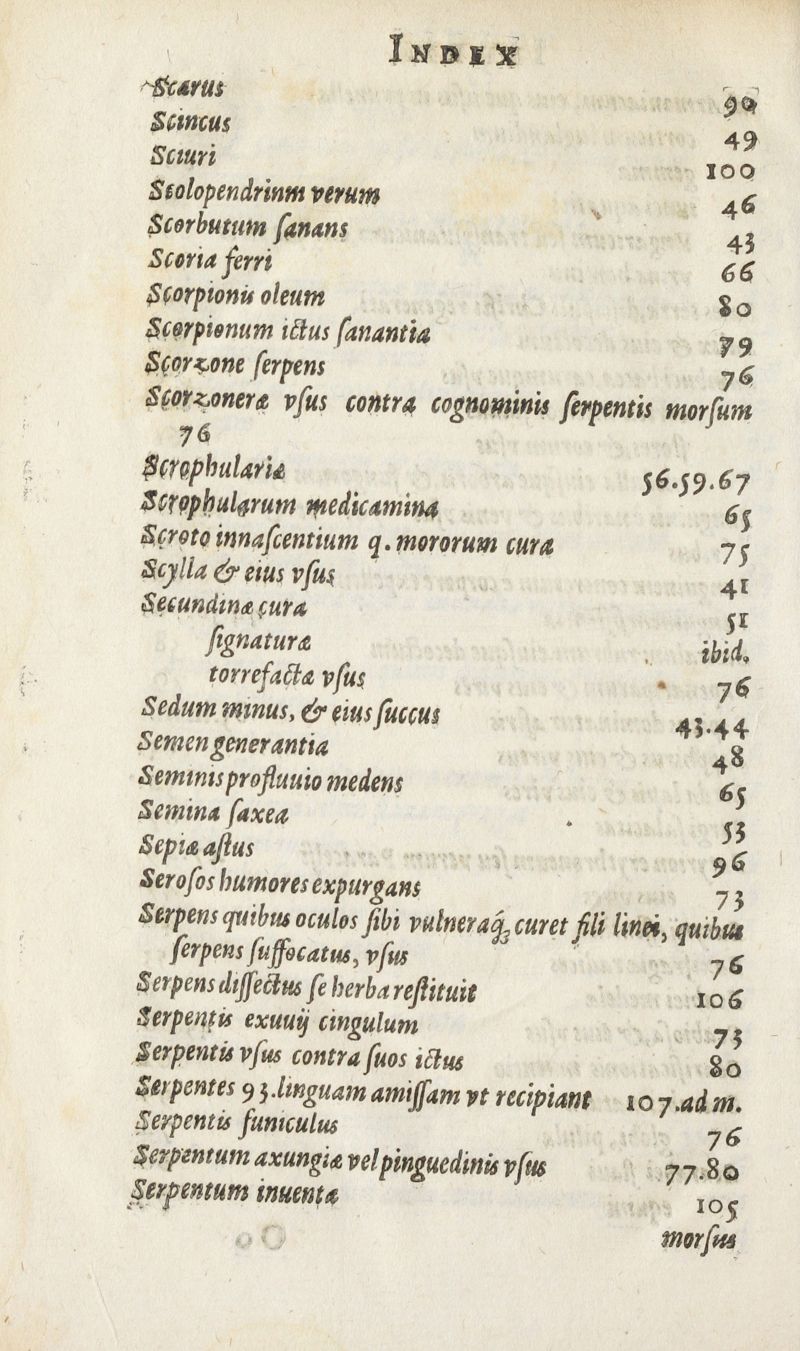 INDEX
Scarus 90
Scincus 49
Sciuri 100
Scolopendrinm verum 46
Scorbutum ſanans 43
Scoria ferri 66
Scorpionis oleum 80
Scorpionum ictus ſanantia 79
Scorzone ſerpens 76
Scorzoneræ vſus contra cognominis ſerpentis morſum
76
Scrophulariæ 56.59.67
Scrophularum medicamina 65
Scroto innaſcentium q. mororum cura 75
Scylla & eius vſus 41
Secundinæ cura 51
ſignaturæ ibid.
torrefactæ vſus 76
Sedum minus, & eius ſuccus 43.44
Semen generantia 48
Seminis profluuio medens 65
Semina ſaxea 53
Sepiæ aſtus 96
Seroſos humores expurgans 73
Serpens quibus oculos ſibi vulneraq́; curet fili linei, quibus
ſerpens ſuffocatus, vſus 76
Serpens diſſectus ſe herba reſtituit 106
Serpentis exuuij cingulum 73
Serpentis vſus contra ſuos ictus 80
Serpentes 93.linguam amiſſam vt recipiant 107.ad m.
Serpentis funiculus 76
Serpentum axungiæ vel pinguedinis vſus 77.80
Serpentum inuenta 105
morſus